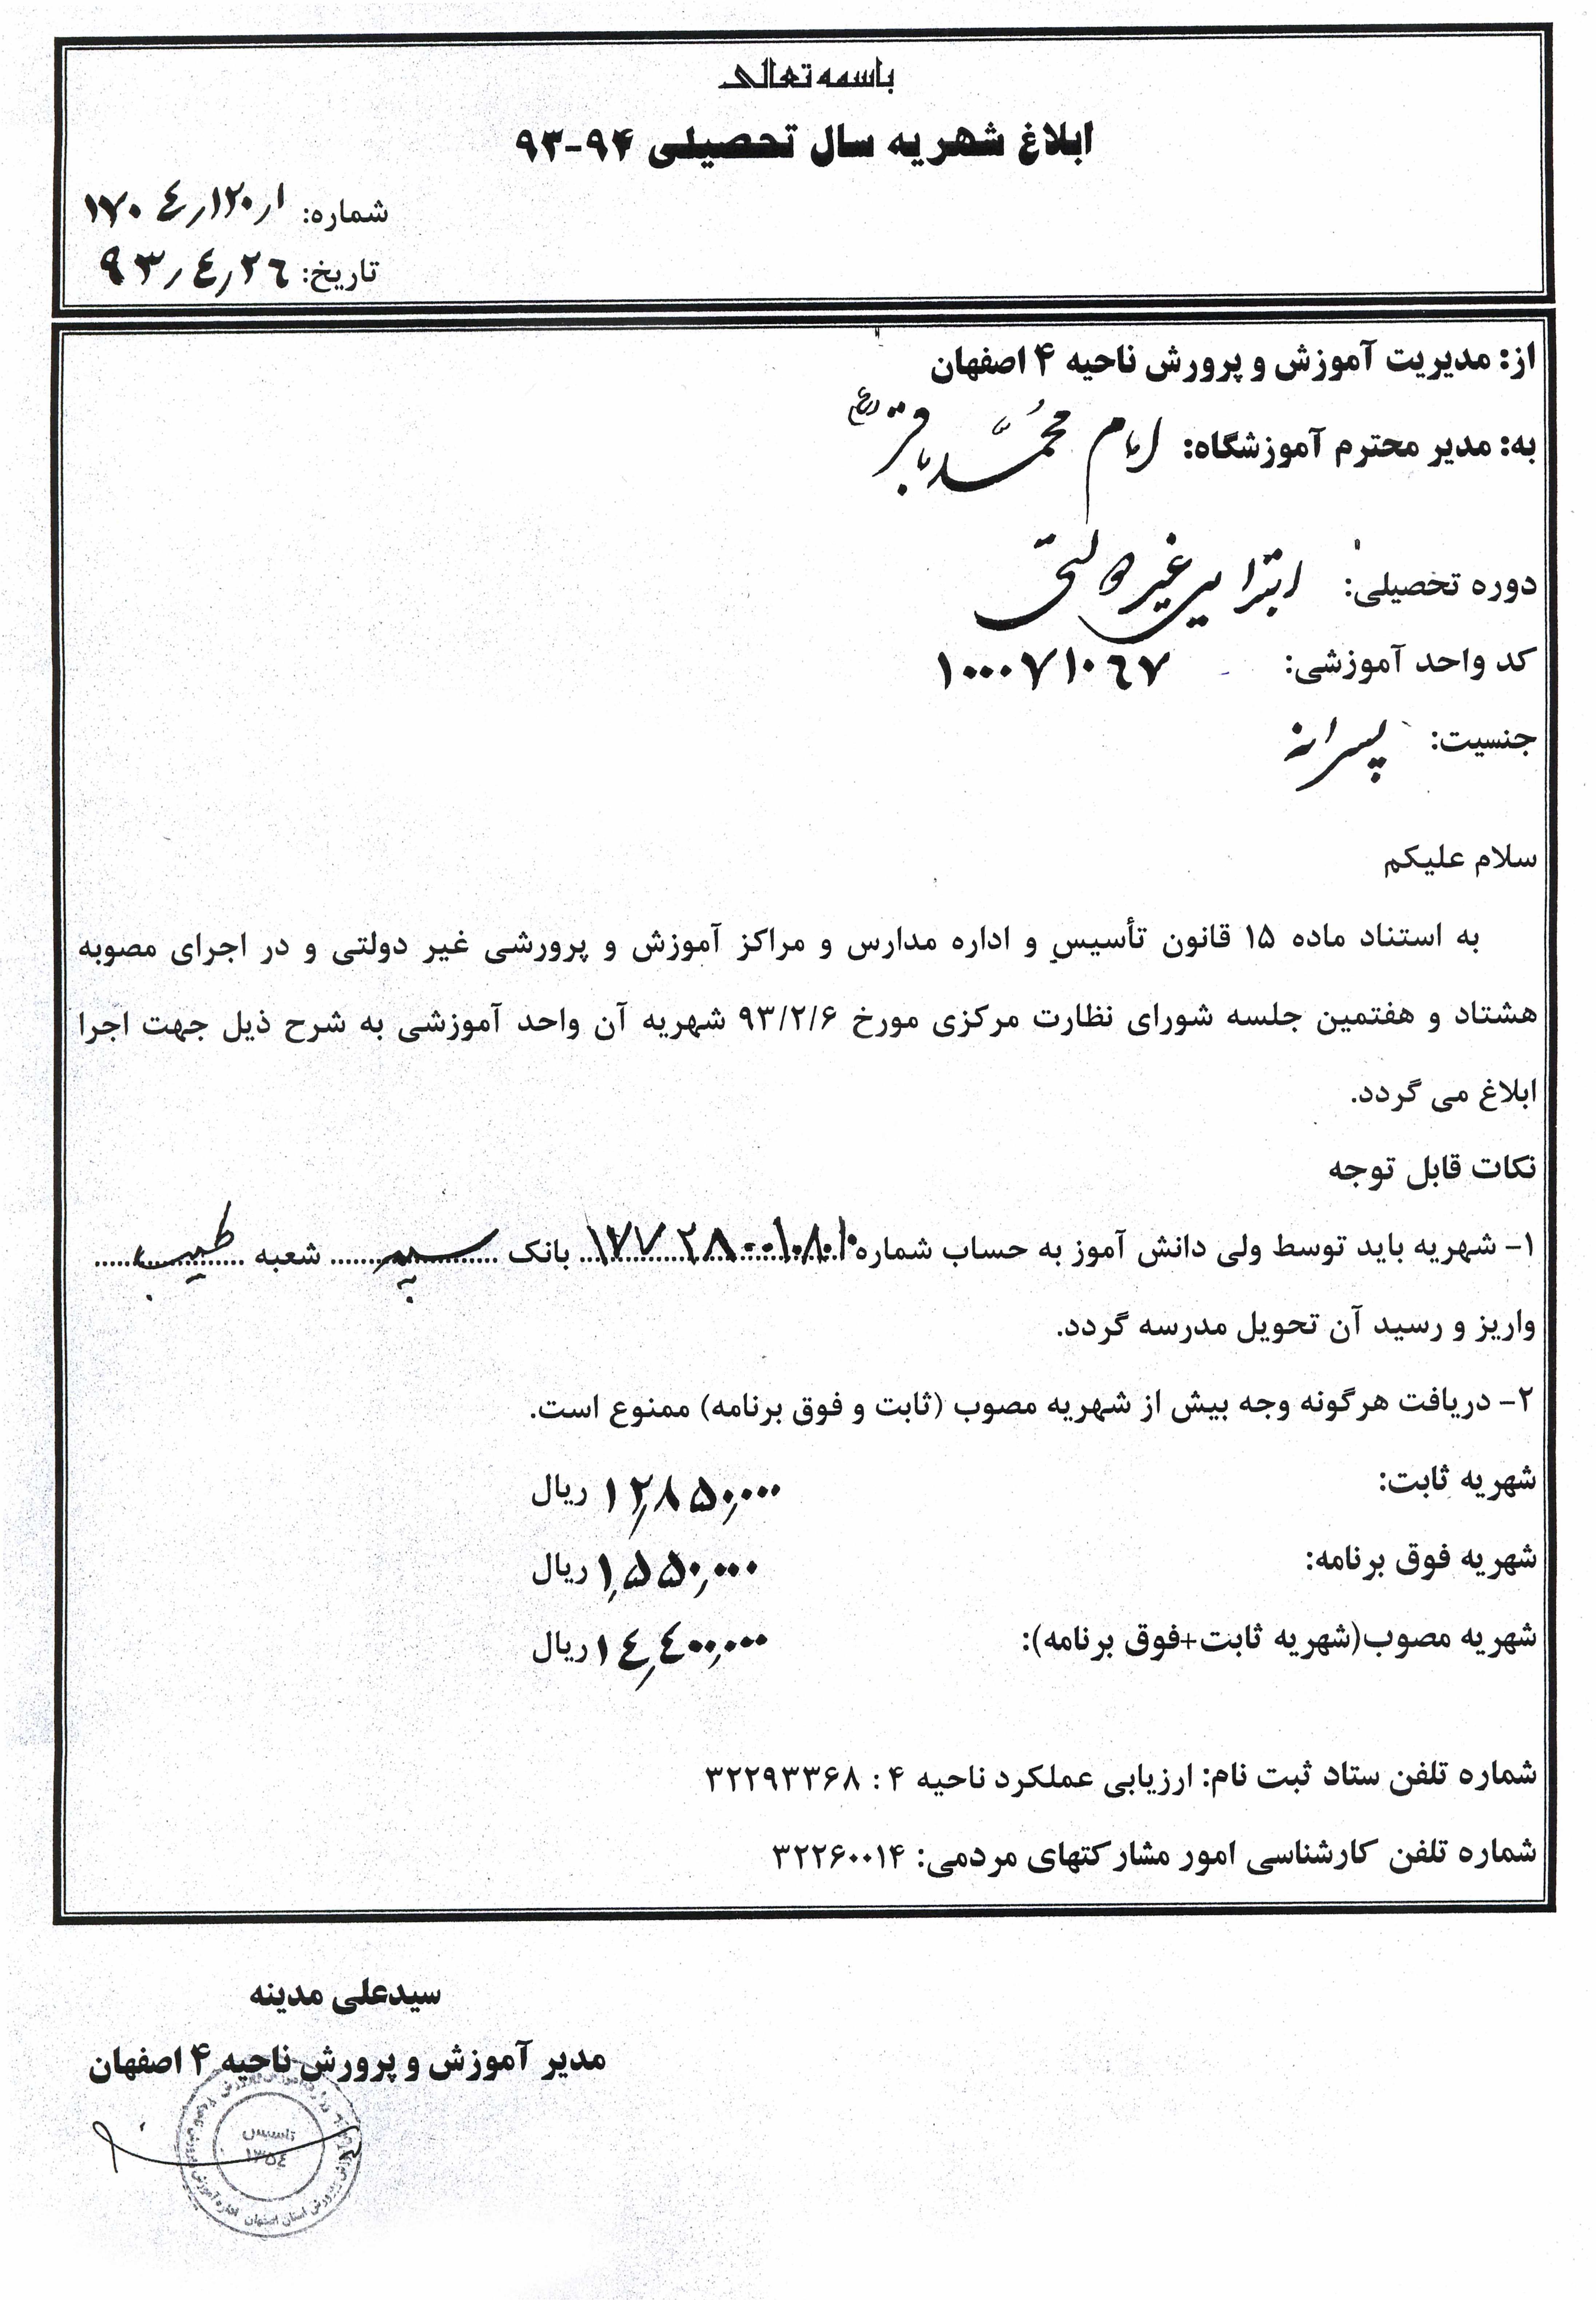 باسمه تعالی
ابلاغ شهریه سال تحصیلی ۹۴-۹۳
شماره: ۱۷۰۴/۱۲۰/۱
تاریخ: ۹۳/٤/۲٦
از: مدیریت آموزش و پرورش ناحیه ۴ اصفهان
به: مدیر محترم آموزشگاه: امام محمّد باقر (ع)
دوره تحصیلی: ابتدایی غیر دولتی
کد واحد آموزشی: ۱۰۰۰۷۱۰٦۷
جنسیت: پسرانه
سلام علیکم
به استناد ماده ۱۵ قانون تأسیس و اداره مدارس و مراکز آموزش و پرورشی غیر دولتی و در اجرای مصوبه
هشتاد و هفتمین جلسه شورای نظارت مرکزی مورخ ۹۳/۲/۶ شهریه آن واحد آموزشی به شرح ذیل جهت اجرا
ابلاغ می گردد.
نکات قابل توجه
۱- شهریه باید توسط ولی دانش آموز به حساب شماره بانک سپه شعبه طیب
واریز و رسید آن تحویل مدرسه گردد.
۲- دریافت هرگونه وجه بیش از شهریه مصوب (ثابت و فوق برنامه) ممنوع است.
شهریه ثابت: ۱۲,۸۵۰,۰۰۰ ریال
شهریه فوق برنامه: ۱,۵۵۰,۰۰۰ ریال
شهریه مصوب(شهریه ثابت+فوق برنامه): ۱٤,٤۰۰,۰۰۰ ریال
شماره تلفن ستاد ثبت نام: ارزیابی عملکرد ناحیه ۴ : ۳۲۲۹۳۳۶۸
شماره تلفن کارشناسی امور مشارکتهای مردمی: ۳۲۲۶۰۰۱۴
سیدعلی مدینه
مدیر آموزش و پرورش ناحیه ۴ اصفهان
تاسیس
۱۳۵٤